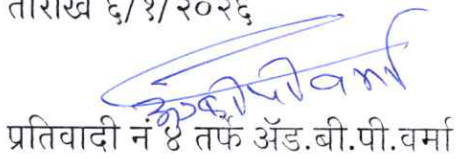 तारीख ६/१/२०२६
प्रतिवादी नं ४ तर्फे ॲड.बी.पी.वर्मा